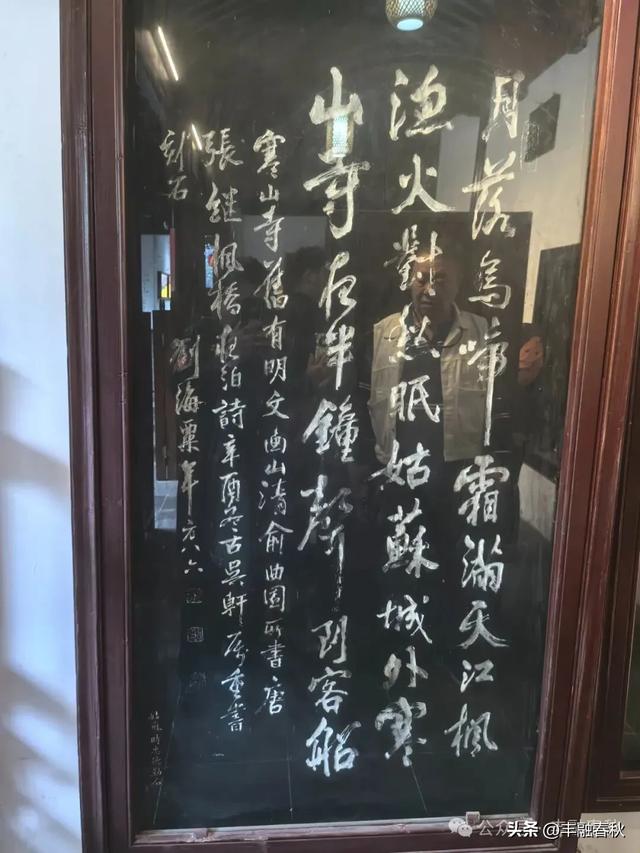 月落烏啼霜滿天江楓
漁火對愁眠姑蘇城外寒
山寺夜半鐘聲到客船
寒山寺舊有明文画山清俞曲園所書唐
張继楓橋夜泊詩辛酉冬古吳軒属重書
刻石
劉海粟年方八六
公众号
头条 @丰融春秋